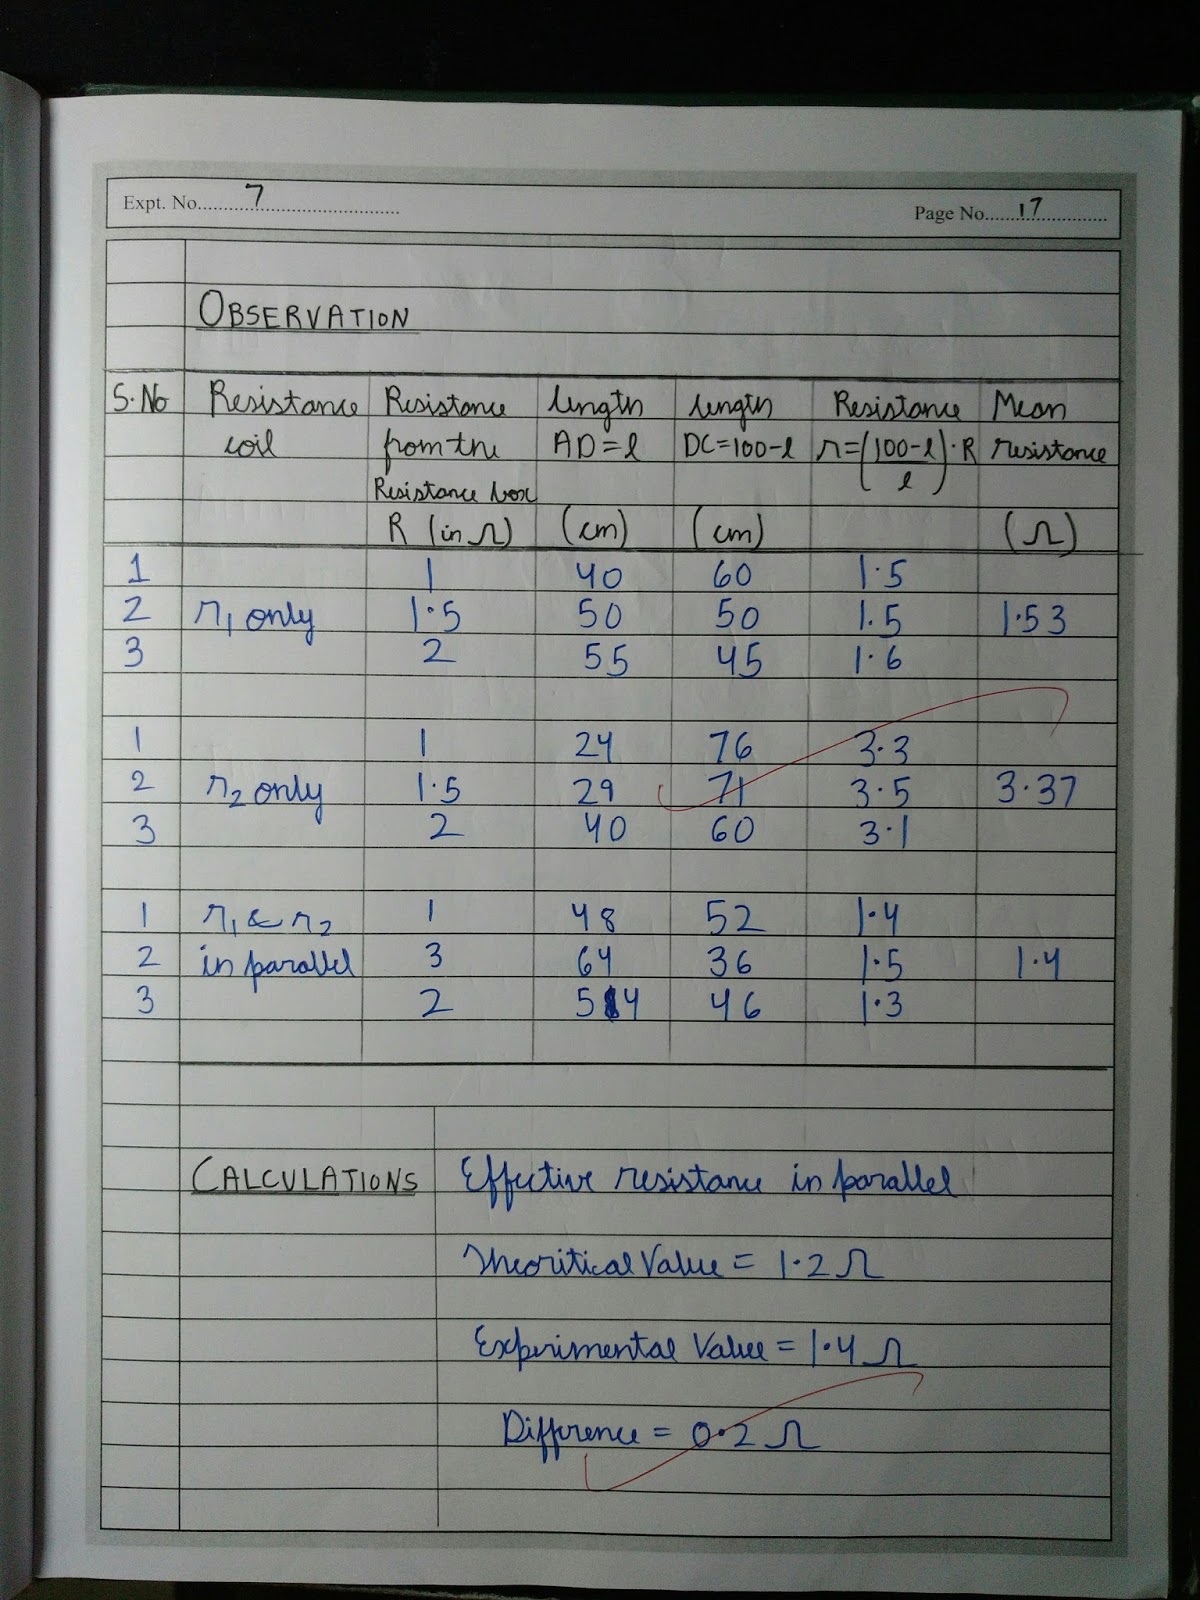 Expt. No. 7
Page No. 17
OBSERVATION
S.No Resistance coil Resistance from the Resistance box R (in Ω) length AD=l (cm) length DC=100-l (cm) Resistance r=(100-l/l)·R Mean resistance (Ω)
1 1 40 60 1.5
2 r1 only 1.5 50 50 1.5 1.53
3 2 55 45 1.6
1 1 24 76 3.3
2 r2 only 1.5 29 71 3.5 3.37
3 2 40 60 3.1
1 r1 & r2 1 48 52 1.4
2 in parallel 3 64 36 1.5 1.4
3 2 54 46 1.3
CALCULATIONS Effective resistance in parallel
Theoritical Value = 1.2 Ω
Experimental Value = 1.4 Ω
Difference = 0.2 Ω